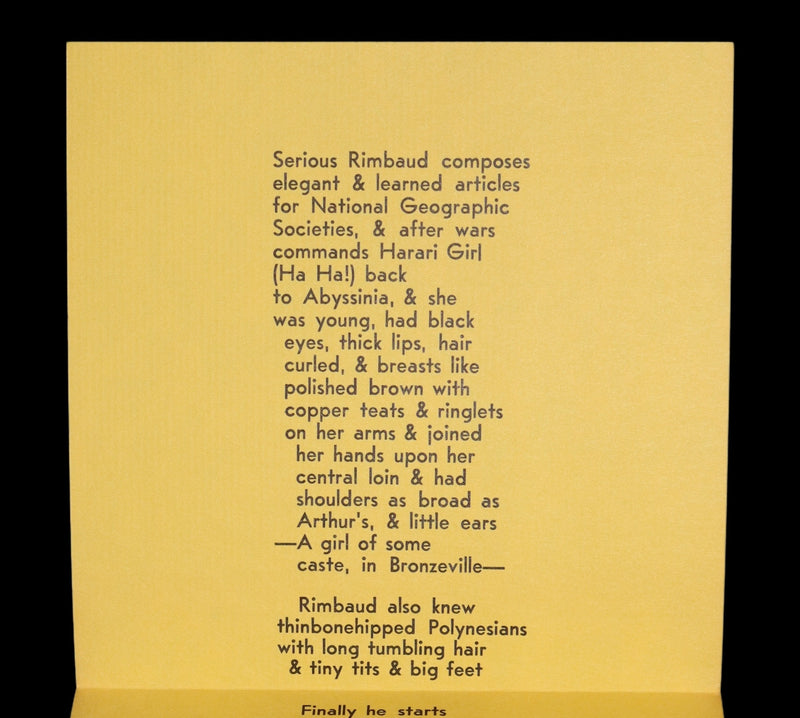 Serious Rimbaud composes
elegant & learned articles
for National Geographic
Societies, & after wars
commands Harari Girl
(Ha Ha!) back
to Abyssinia, & she
was young, had black
eyes, thick lips, hair
curled, & breasts like
polished brown with
copper teats & ringlets
on her arms & joined
her hands upon her
central loin & had
shoulders as broad as
Arthur's, & little ears
—A girl of some
caste, in Bronzeville—
Rimbaud also knew
thinbonehipped Polynesians
with long tumbling hair
& tiny tits & big feet
Finally he starts